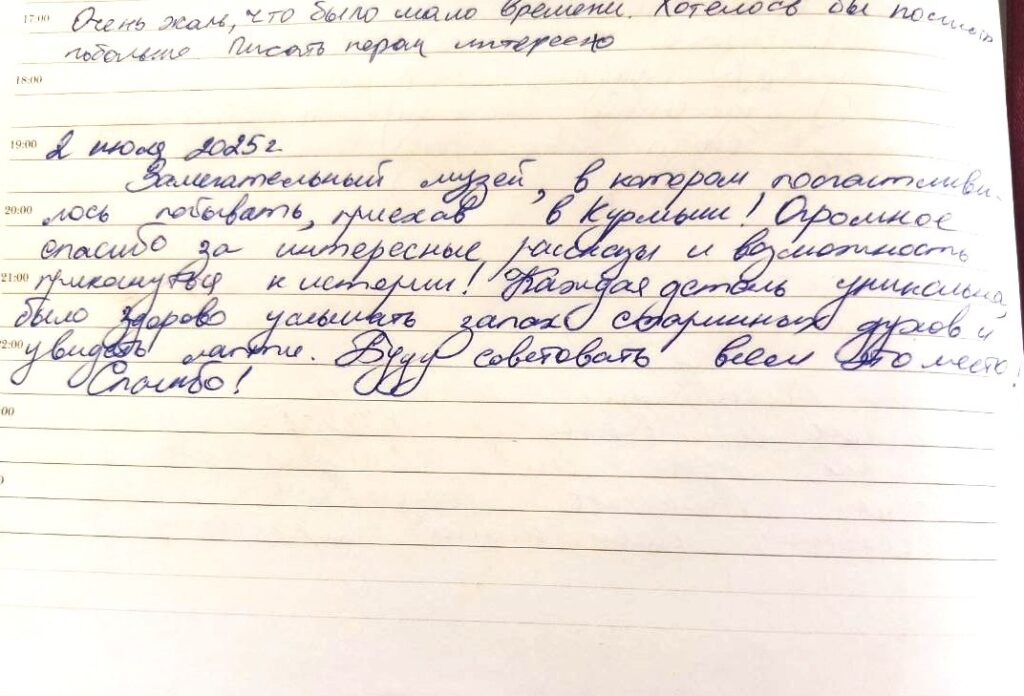 17:00 Очень жаль, что было мало времени. Хотелось бы
побольше Писать пером интересно
18:00
19:00 2 июля 2025 г
Замечательный музей, в котором посчастливи-
20:00 лось побывать, приехав в Курмыш! Огромное
спасибо за интересные рассказы и возможность
21:00 прикоснуться к истории! Каждая деталь уникальна,
было здорово услышать запах старинных духов и
22:00 увидеть лапти. Буду советовать всем это место!
Спасибо!
00
0